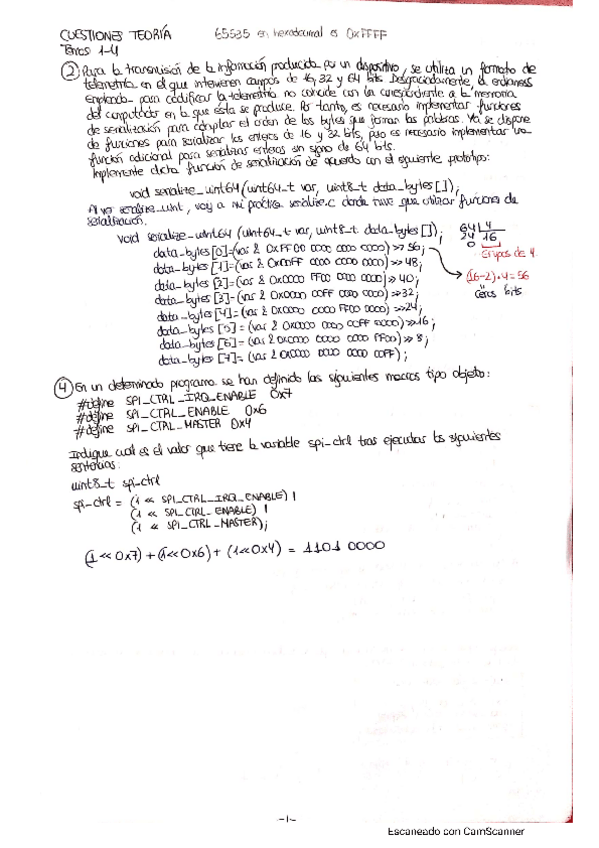 CUESTIONES TEORÍA 65535 en hexadecimal es 0xFFFF
Temas 1-4
② Para la transmisión de la información producida por un dispositivo, se utiliza un formato de
telemetría en el que intervienen campos de 16, 32 y 64 bits. Desgraciadamente, el endianess
empleado para codificar la telemetría no coincide con la correspondiente a la memoria
del computador en la que ésta se produce. Por tanto, es necesario implementar funciones
de serialización para cambiar el orden de los bytes que forman las palabras. Ya se dispone
de funciones para serializar los enteros de 16 y 32 bits, pero es necesario implementar una
función adicional para serializar enteros sin signo de 64 bits.
Implemente dicha función de serialización de acuerdo con el siguiente prototipo:
void serialize_uint64 (uint64_t var, uint8_t data_bytes[]);
Al ver serialize_uint, voy a mi práctica serialize.c donde tuve que utilizar funciones de
serialización.
void serialize_uint64 (uint64_t var, uint8_t data_bytes[]);
data_bytes[0]=(var & 0xFF00 0000 0000 0000) >> 56;
data_bytes[1]=(var & 0x00FF 0000 0000 0000) >> 48;
data_bytes[2]=(var & 0x0000 FF00 0000 0000) >> 40;
data_bytes[3]=(var & 0x0000 00FF 0000 0000) >> 32;
data_bytes[4]=(var & 0x0000 0000 FF00 0000) >> 24;
data_bytes[5]=(var & 0x0000 0000 00FF 0000) >> 16;
data_bytes[6]=(var & 0x0000 0000 0000 FF00) >> 8;
data_bytes[7]=(var & 0x0000 0000 0000 00FF);
64 |4
24 16
0 Grupos de 4
(16-2)·4=56
ceros bits
④ En un determinado programa se han definido las siguientes macros tipo objeto:
#define SPI_CTRL_IRQ_ENABLE 0x7
#define SPI_CTRL_ENABLE 0x6
#define SPI_CTRL_MASTER 0x4
Indique cual es el valor que tiene la variable spi-ctrl tras ejecutar las siguientes
sentencias:
uint8_t spi-ctrl
spi-ctrl = (1 << SPI_CTRL_IRQ_ENABLE) |
(1 << SPI_CTRL_ENABLE) |
(1 << SPI_CTRL_MASTER);
(1<<0x7)+(1<<0x6)+(1<<0x4) = 1101 0000
-1-
Escaneado con CamScanner